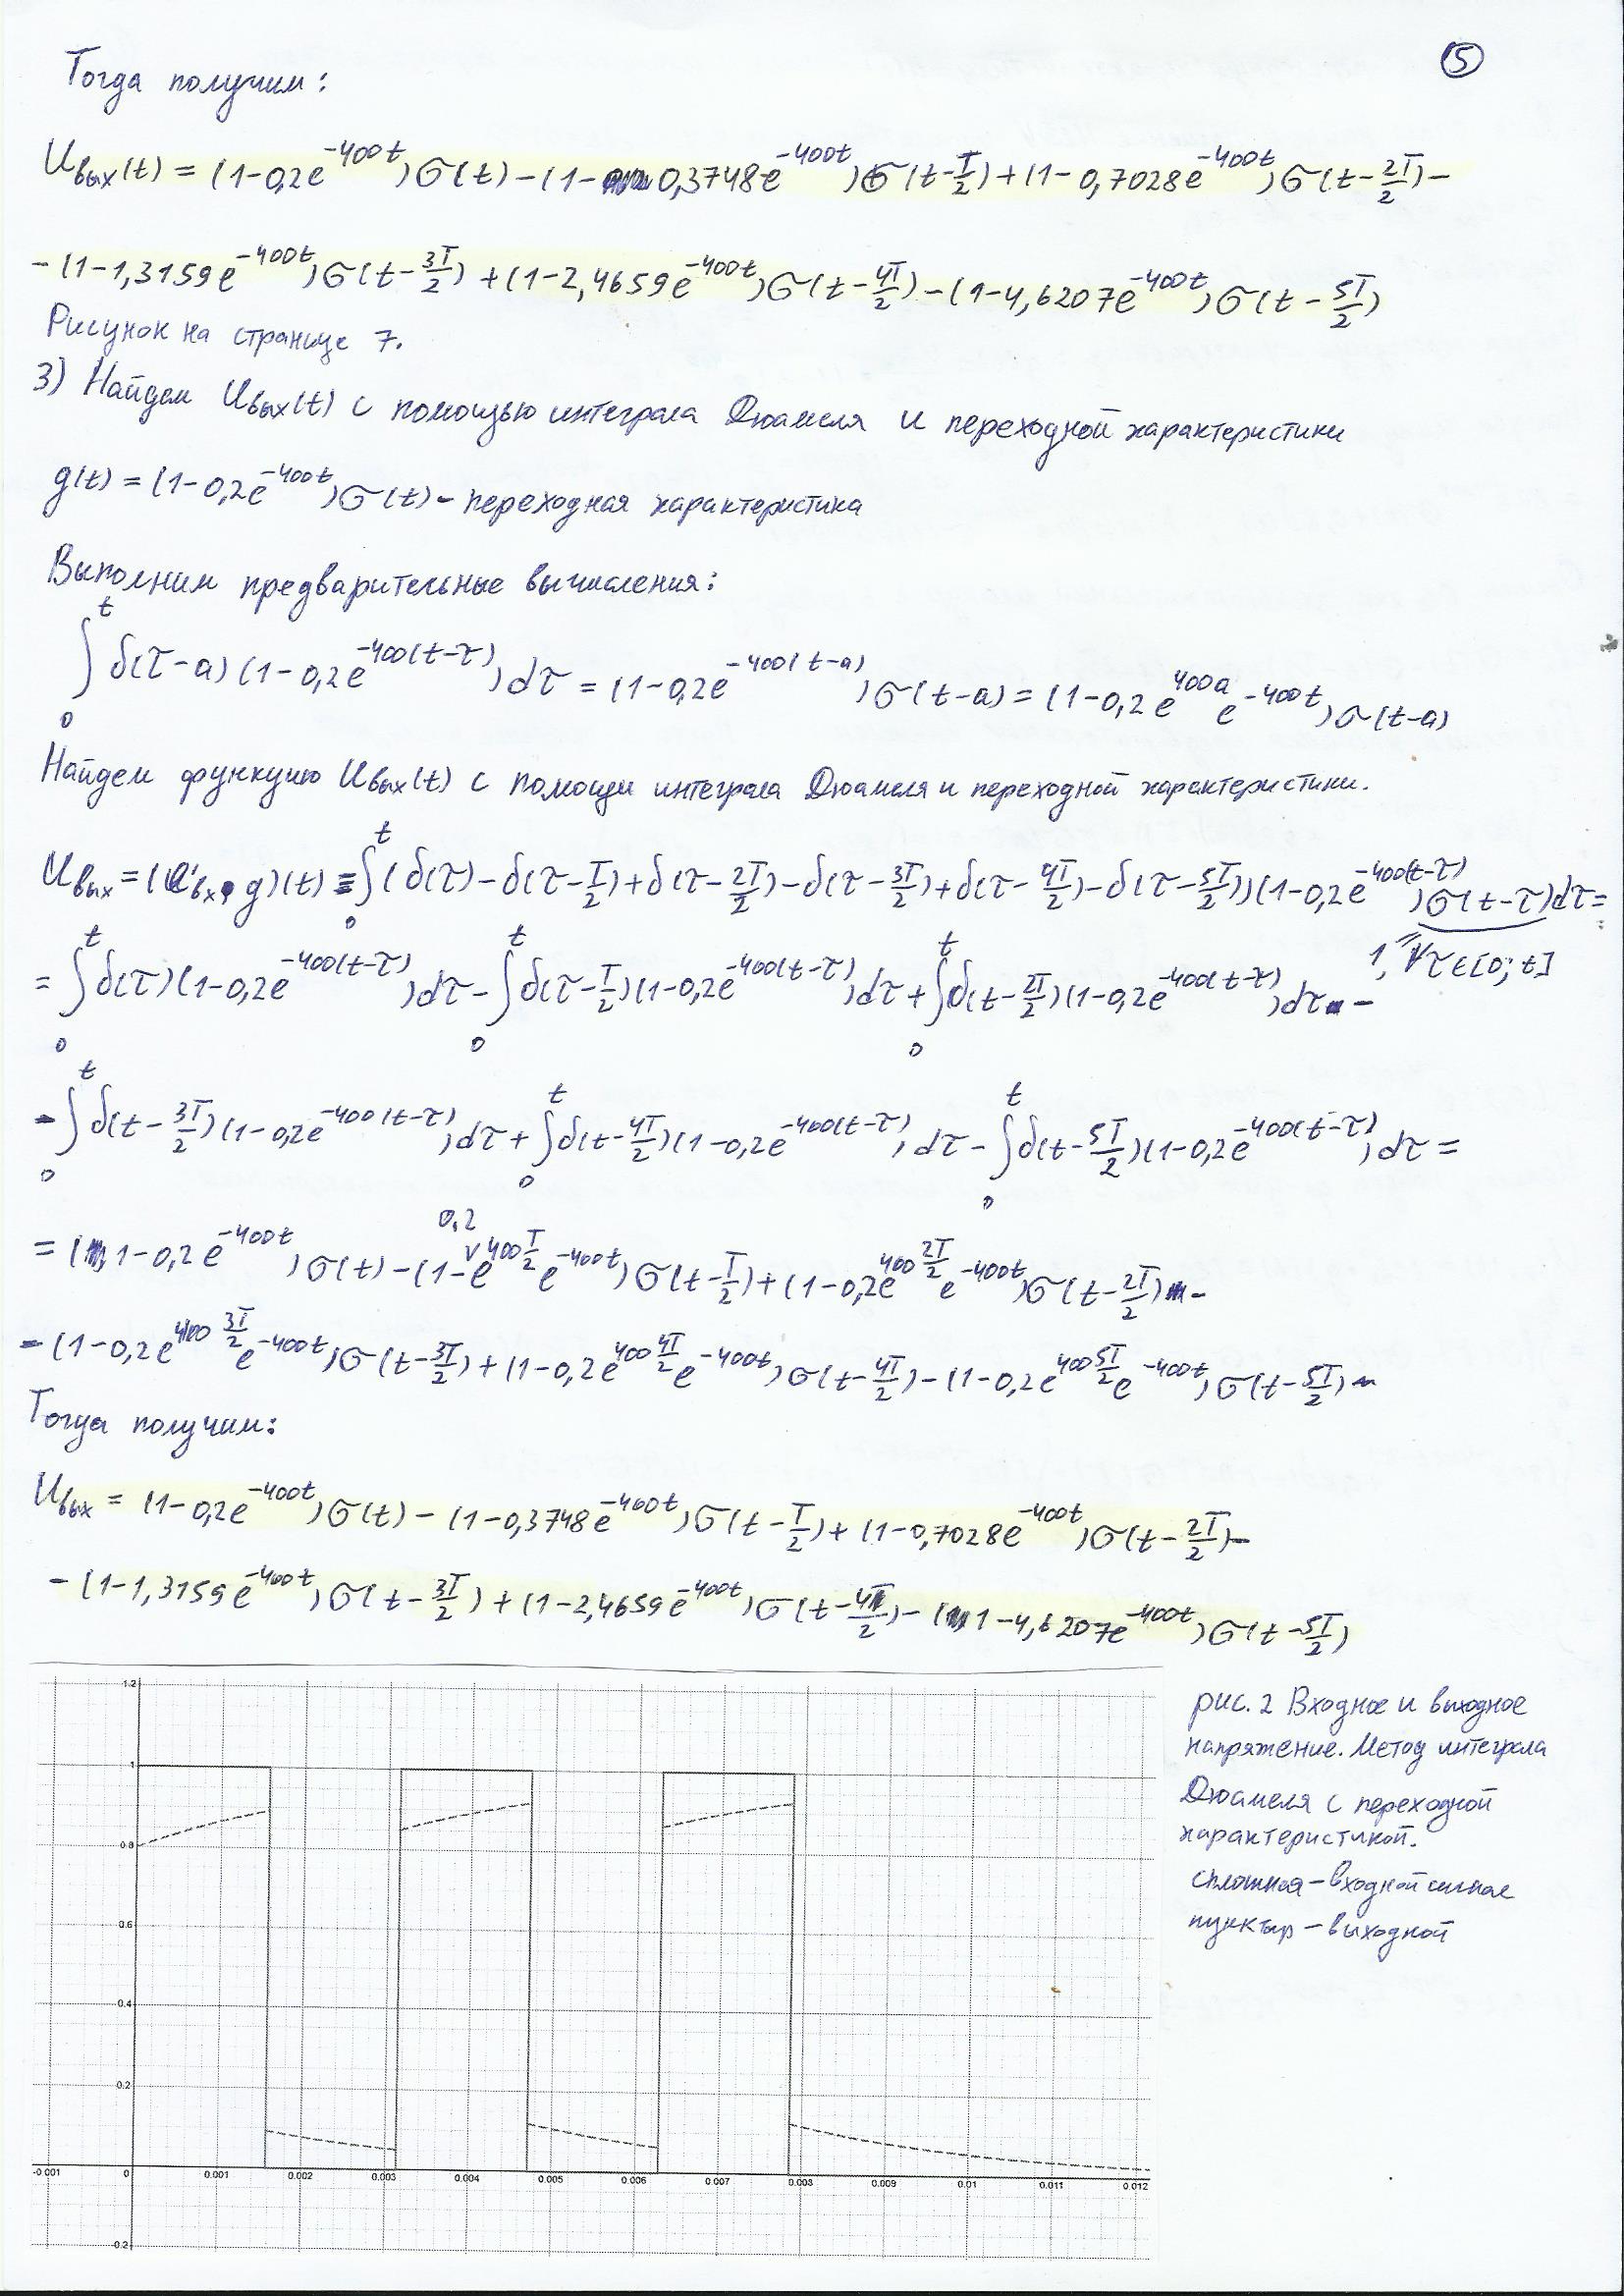 5
Тогда получим:
Uвых(t) = (1-0,2e^{-400t})σ(t) - (1-0,3748e^{-400t})σ(t-T/2) + (1-0,7028e^{-400t})σ(t-2T/2) -
-(1-1,3159e^{-400t})σ(t-3T/2) + (1-2,4659e^{-400t})σ(t-4T/2) - (1-4,6207e^{-400t})σ(t-5T/2)
Рисунок на странице 7.
3) Найдем Uвых(t) с помощью интеграла Дюамеля и переходной характеристики
g(t) = (1-0,2e^{-400t})σ(t) - переходная характеристика
Выполним предварительные вычисления:
∫_0^t δ(τ-a)(1-0,2e^{-400(t-τ)})dτ = (1-0,2e^{-400(t-a)})σ(t-a) = (1-0,2e^{400a}e^{-400t})σ(t-a)
Найдем функцию Uвых(t) с помощи интеграла Дюамеля и переходной характеристики.
Uвых = (U'вх * g)(t) = ∫_0^t (δ(τ) - δ(τ-T/2) + δ(τ-2T/2) - δ(τ-3T/2) + δ(τ-4T/2) - δ(τ-5T/2))(1-0,2e^{-400(t-τ)})σ(t-τ)dτ =
1, ∀τ∈[0; t]
= ∫_0^t δ(τ)(1-0,2e^{-400(t-τ)})dτ - ∫_0^t δ(τ-T/2)(1-0,2e^{-400(t-τ)})dτ + ∫_0^t δ(t-2T/2)(1-0,2e^{-400(t-τ)})dτ -
- ∫_0^t δ(t-3T/2)(1-0,2e^{-400(t-τ)})dτ + ∫_0^t δ(t-4T/2)(1-0,2e^{-400(t-τ)})dτ - ∫_0^t δ(t-5T/2)(1-0,2e^{-400(t-τ)})dτ =
= (1-0,2e^{-400t})σ(t) - (1-0,2e^{400 T/2}e^{-400t})σ(t-T/2) + (1-0,2e^{400 2T/2}e^{-400t})σ(t-2T/2) -
-(1-0,2e^{400 3T/2}e^{-400t})σ(t-3T/2) + (1-0,2e^{400 4T/2}e^{-400t})σ(t-4T/2) - (1-0,2e^{400 5T/2}e^{-400t})σ(t-5T/2)
Тогда получим:
Uвых = (1-0,2e^{-400t})σ(t) - (1-0,3748e^{-400t})σ(t-T/2) + (1-0,7028e^{-400t})σ(t-2T/2) -
-(1-1,3159e^{-400t})σ(t-3T/2) + (1-2,4659e^{-400t})σ(t-4T/2) - (1-4,6207e^{-400t})σ(t-5T/2)
рис. 2 Входное и выходное
напряжение. Метод интеграла
Дюамеля с переходной
характеристикой.
сплошная - входной сигнал
пунктир - выходной
1.2
1
0.8
0.6
0.4
0.2
-0.001 0 0.001 0.002 0.003 0.004 0.005 0.006 0.007 0.008 0.009 0.01 0.011 0.012
-0.2